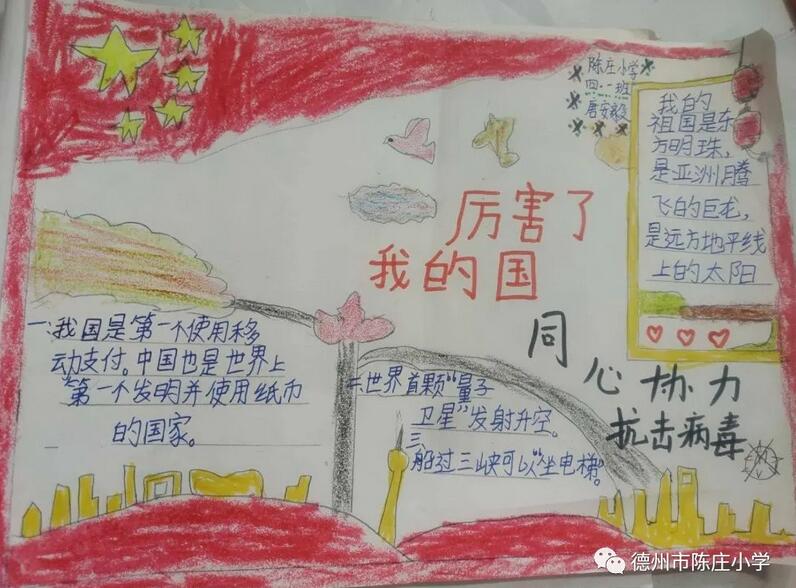 陈庄小学
四.一班
我的
祖国是东
方明珠,
是亚洲腾
飞的巨龙,
是远方地平线
上的太阳
厉害了
我的国
同心协力
抗击病毒
一:我国是第一个使用移
动支付。中国也是世界上
第一个发明并使用纸币
的国家。
二世界首颗“量子
卫星”发射升空。
三
船过三峡可以“坐电梯”。
德州市陈庄小学